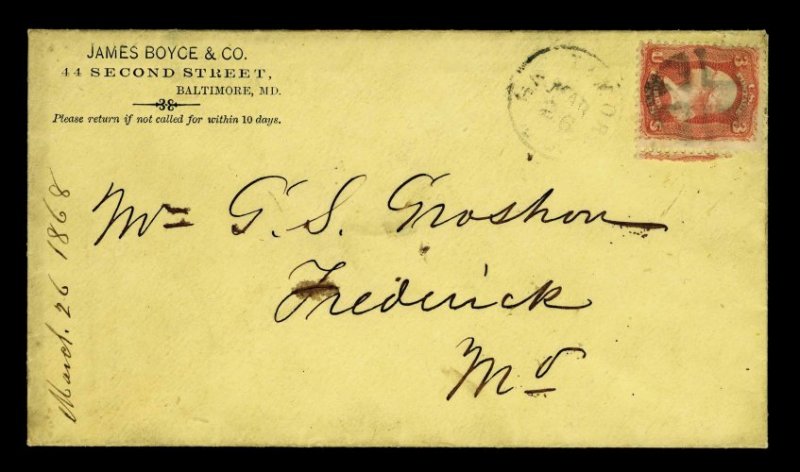 JAMES BOYCE & CO.
44 SECOND STREET,
BALTIMORE, MD.
Please return if not called for within 10 days.
MAR
3
U
S
3
March. 26 1868
Mr G. S. Groshon
Frederick
Md